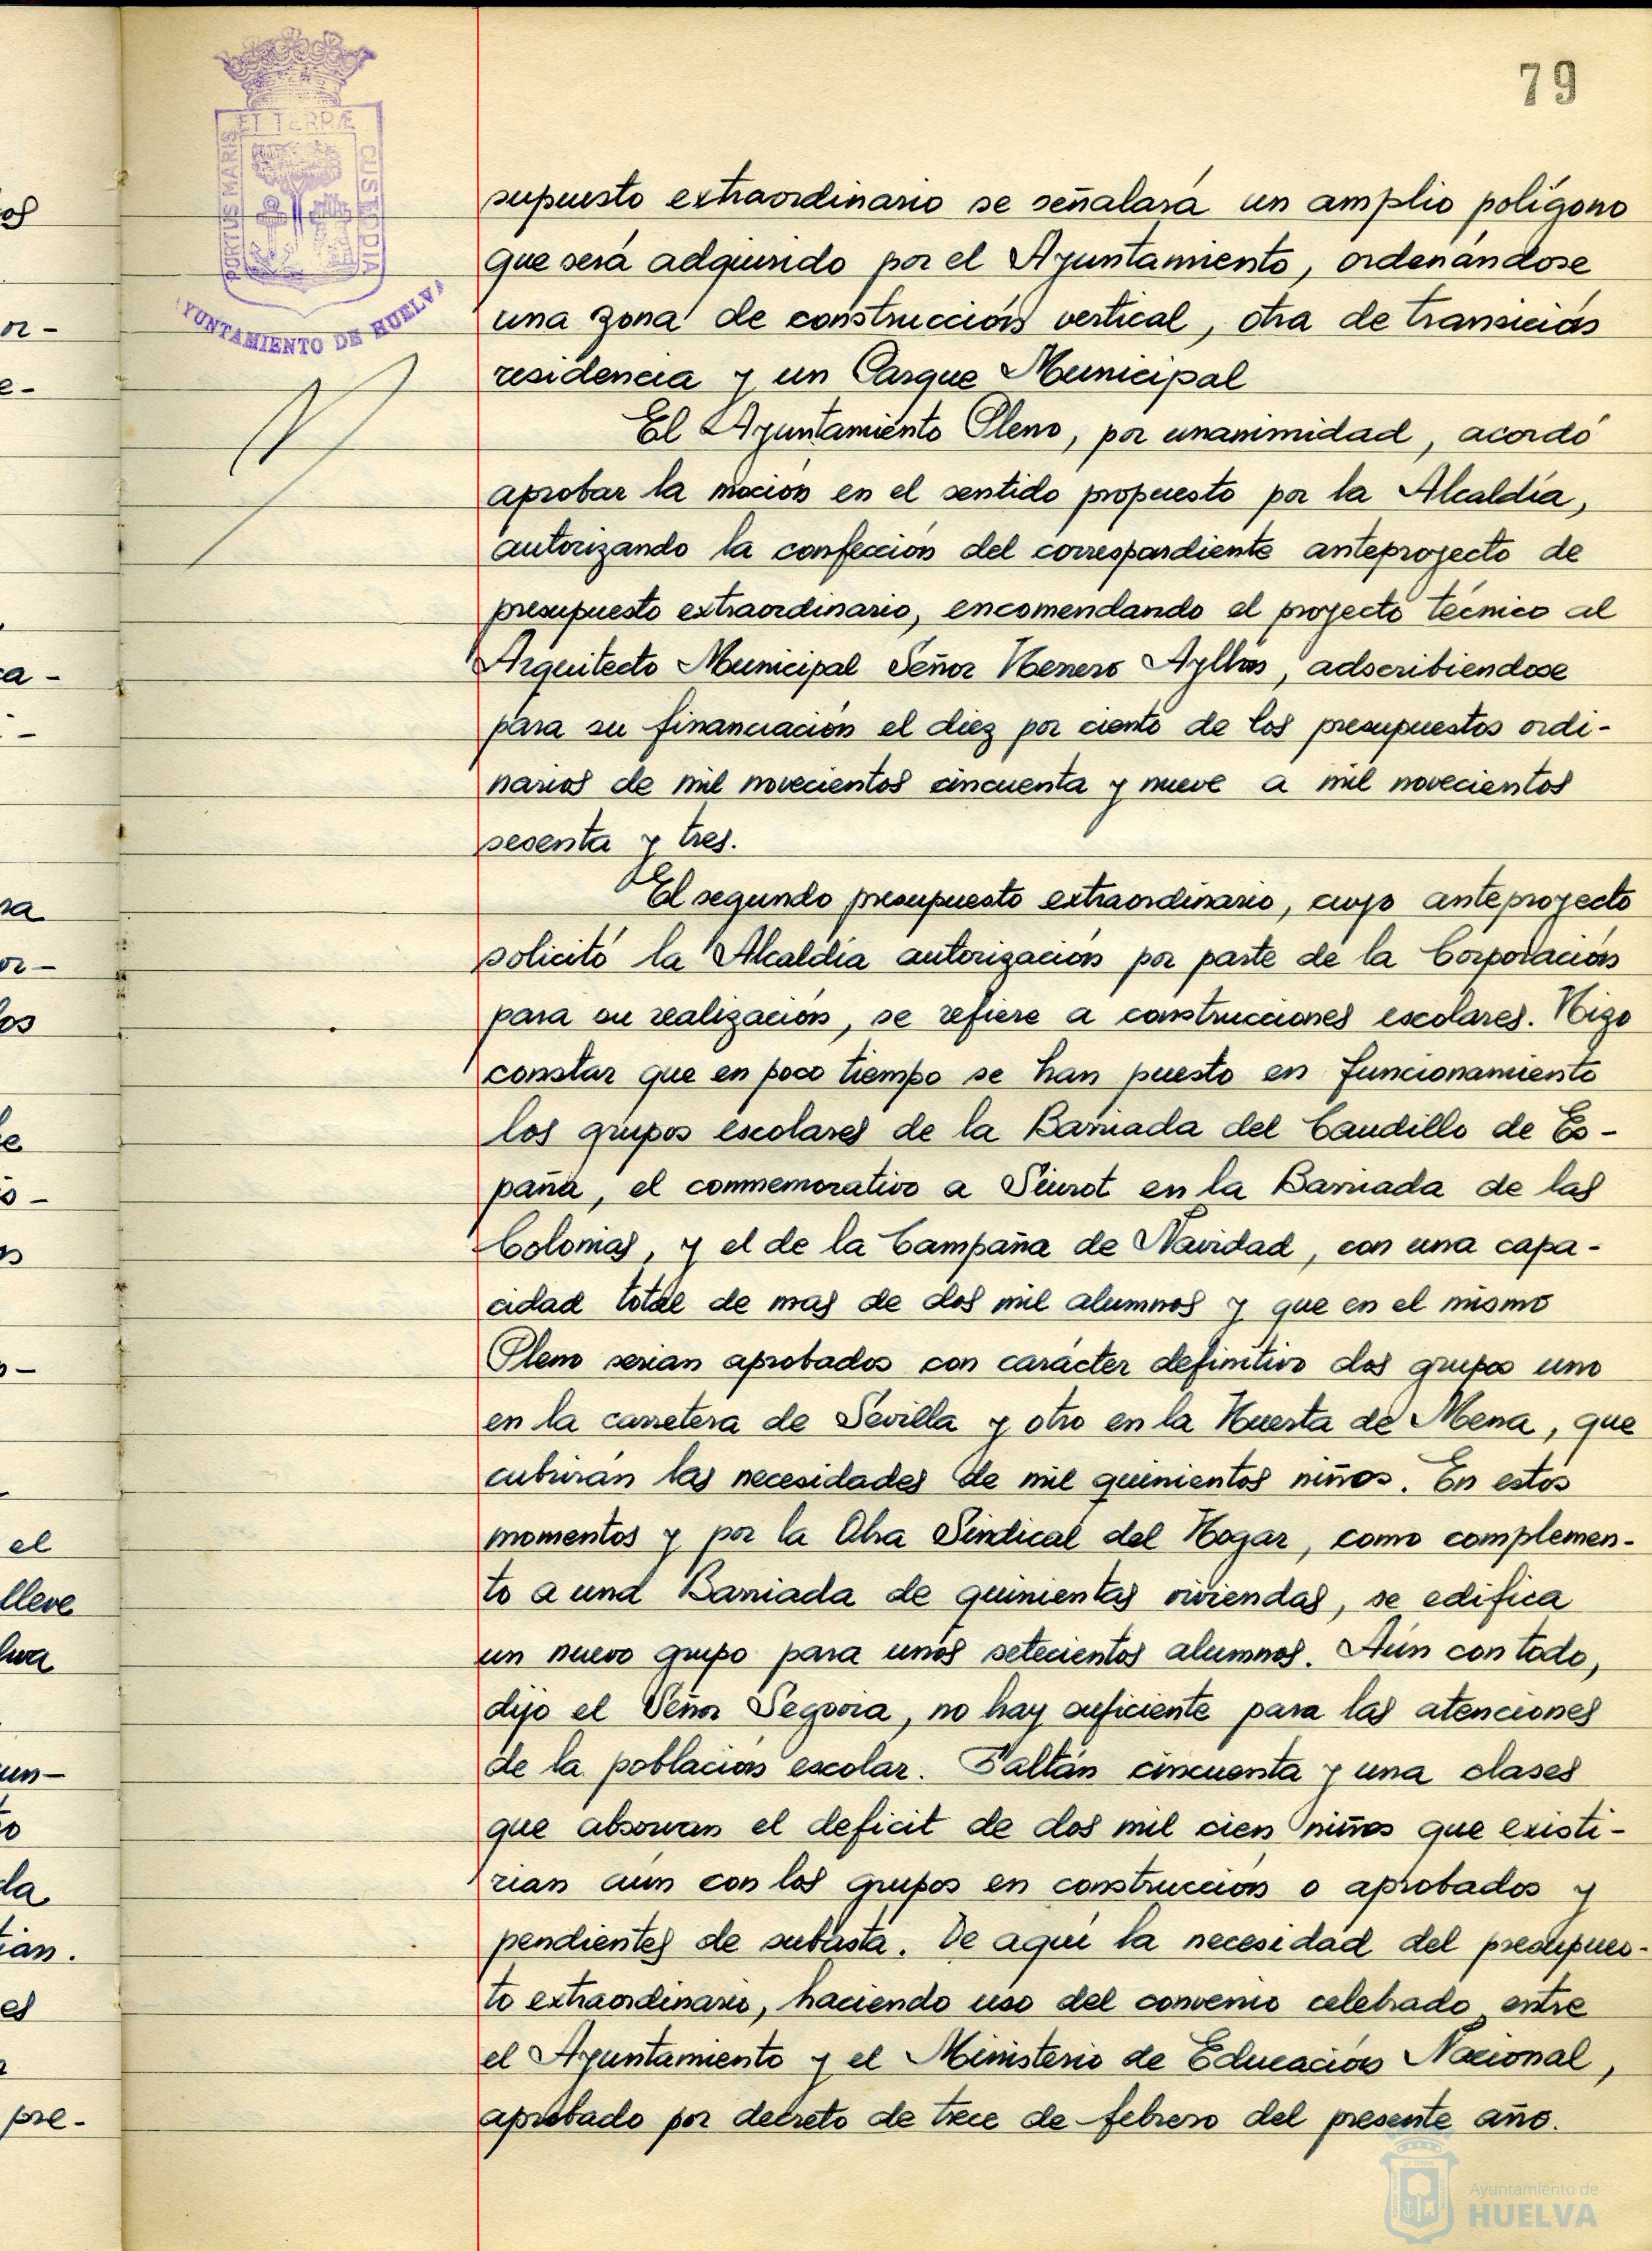 79
PORTUS MARIS ET TERRÆ CUSTODIA
AYUNTAMIENTO DE HUELVA
supuesto extraordinario se señalará un amplio polígono
que será adquirido por el Ayuntamiento, ordenándose
una zona de construcción vertical, otra de transición
residencia y un Parque Municipal
El Ayuntamiento Pleno, por unanimidad, acordó
aprobar la moción en el sentido propuesto por la Alcaldía,
autorizando la confección del correspondiente anteproyecto de
presupuesto extraordinario, encomendando el proyecto técnico al
Arquitecto Municipal Señor Herrero Ayllón, adscribiendose
para su financiación el diez por ciento de los presupuestos ordi-
narios de mil novecientos cincuenta y nueve a mil novecientos
sesenta y tres.
El segundo presupuesto extraordinario, cuyo anteproyecto
solicitó la Alcaldía autorización por parte de la Corporación
para su realización, se refiere a construcciones escolares. Hizo
constar que en poco tiempo se han puesto en funcionamiento
los grupos escolares de la Barriada del Caudillo de Es-
paña, el conmemorativo a Siurot en la Barriada de las
Colonias, y el de la Campaña de Navidad, con una capa-
cidad total de mas de dos mil alumnos y que en el mismo
Pleno serian aprobados con carácter definitivo dos grupos uno
en la carretera de Sevilla y otro en la Huerta de Mena, que
cubrirán las necesidades de mil quinientos niños. En estos
momentos y por la Obra Sindical del Hogar, como complemen-
to a una Barriada de quinientas viviendas, se edifica
un nuevo grupo para unos setecientos alumnos. Aún con todo,
dijo el Señor Segovia, no hay suficiente para las atenciones
de la población escolar. Faltán cincuenta y una clases
que absorvan el deficit de dos mil cien niños que existi-
rian aún con los grupos en construcción o aprobados y
pendientes de subasta. De aquí la necesidad del presupues-
to extraordinario, haciendo uso del convenio celebrado entre
el Ayuntamiento y el Ministerio de Educación Nacional,
aprobado por decreto de trece de febrero del presente año.
Ayuntamiento de
HUELVA